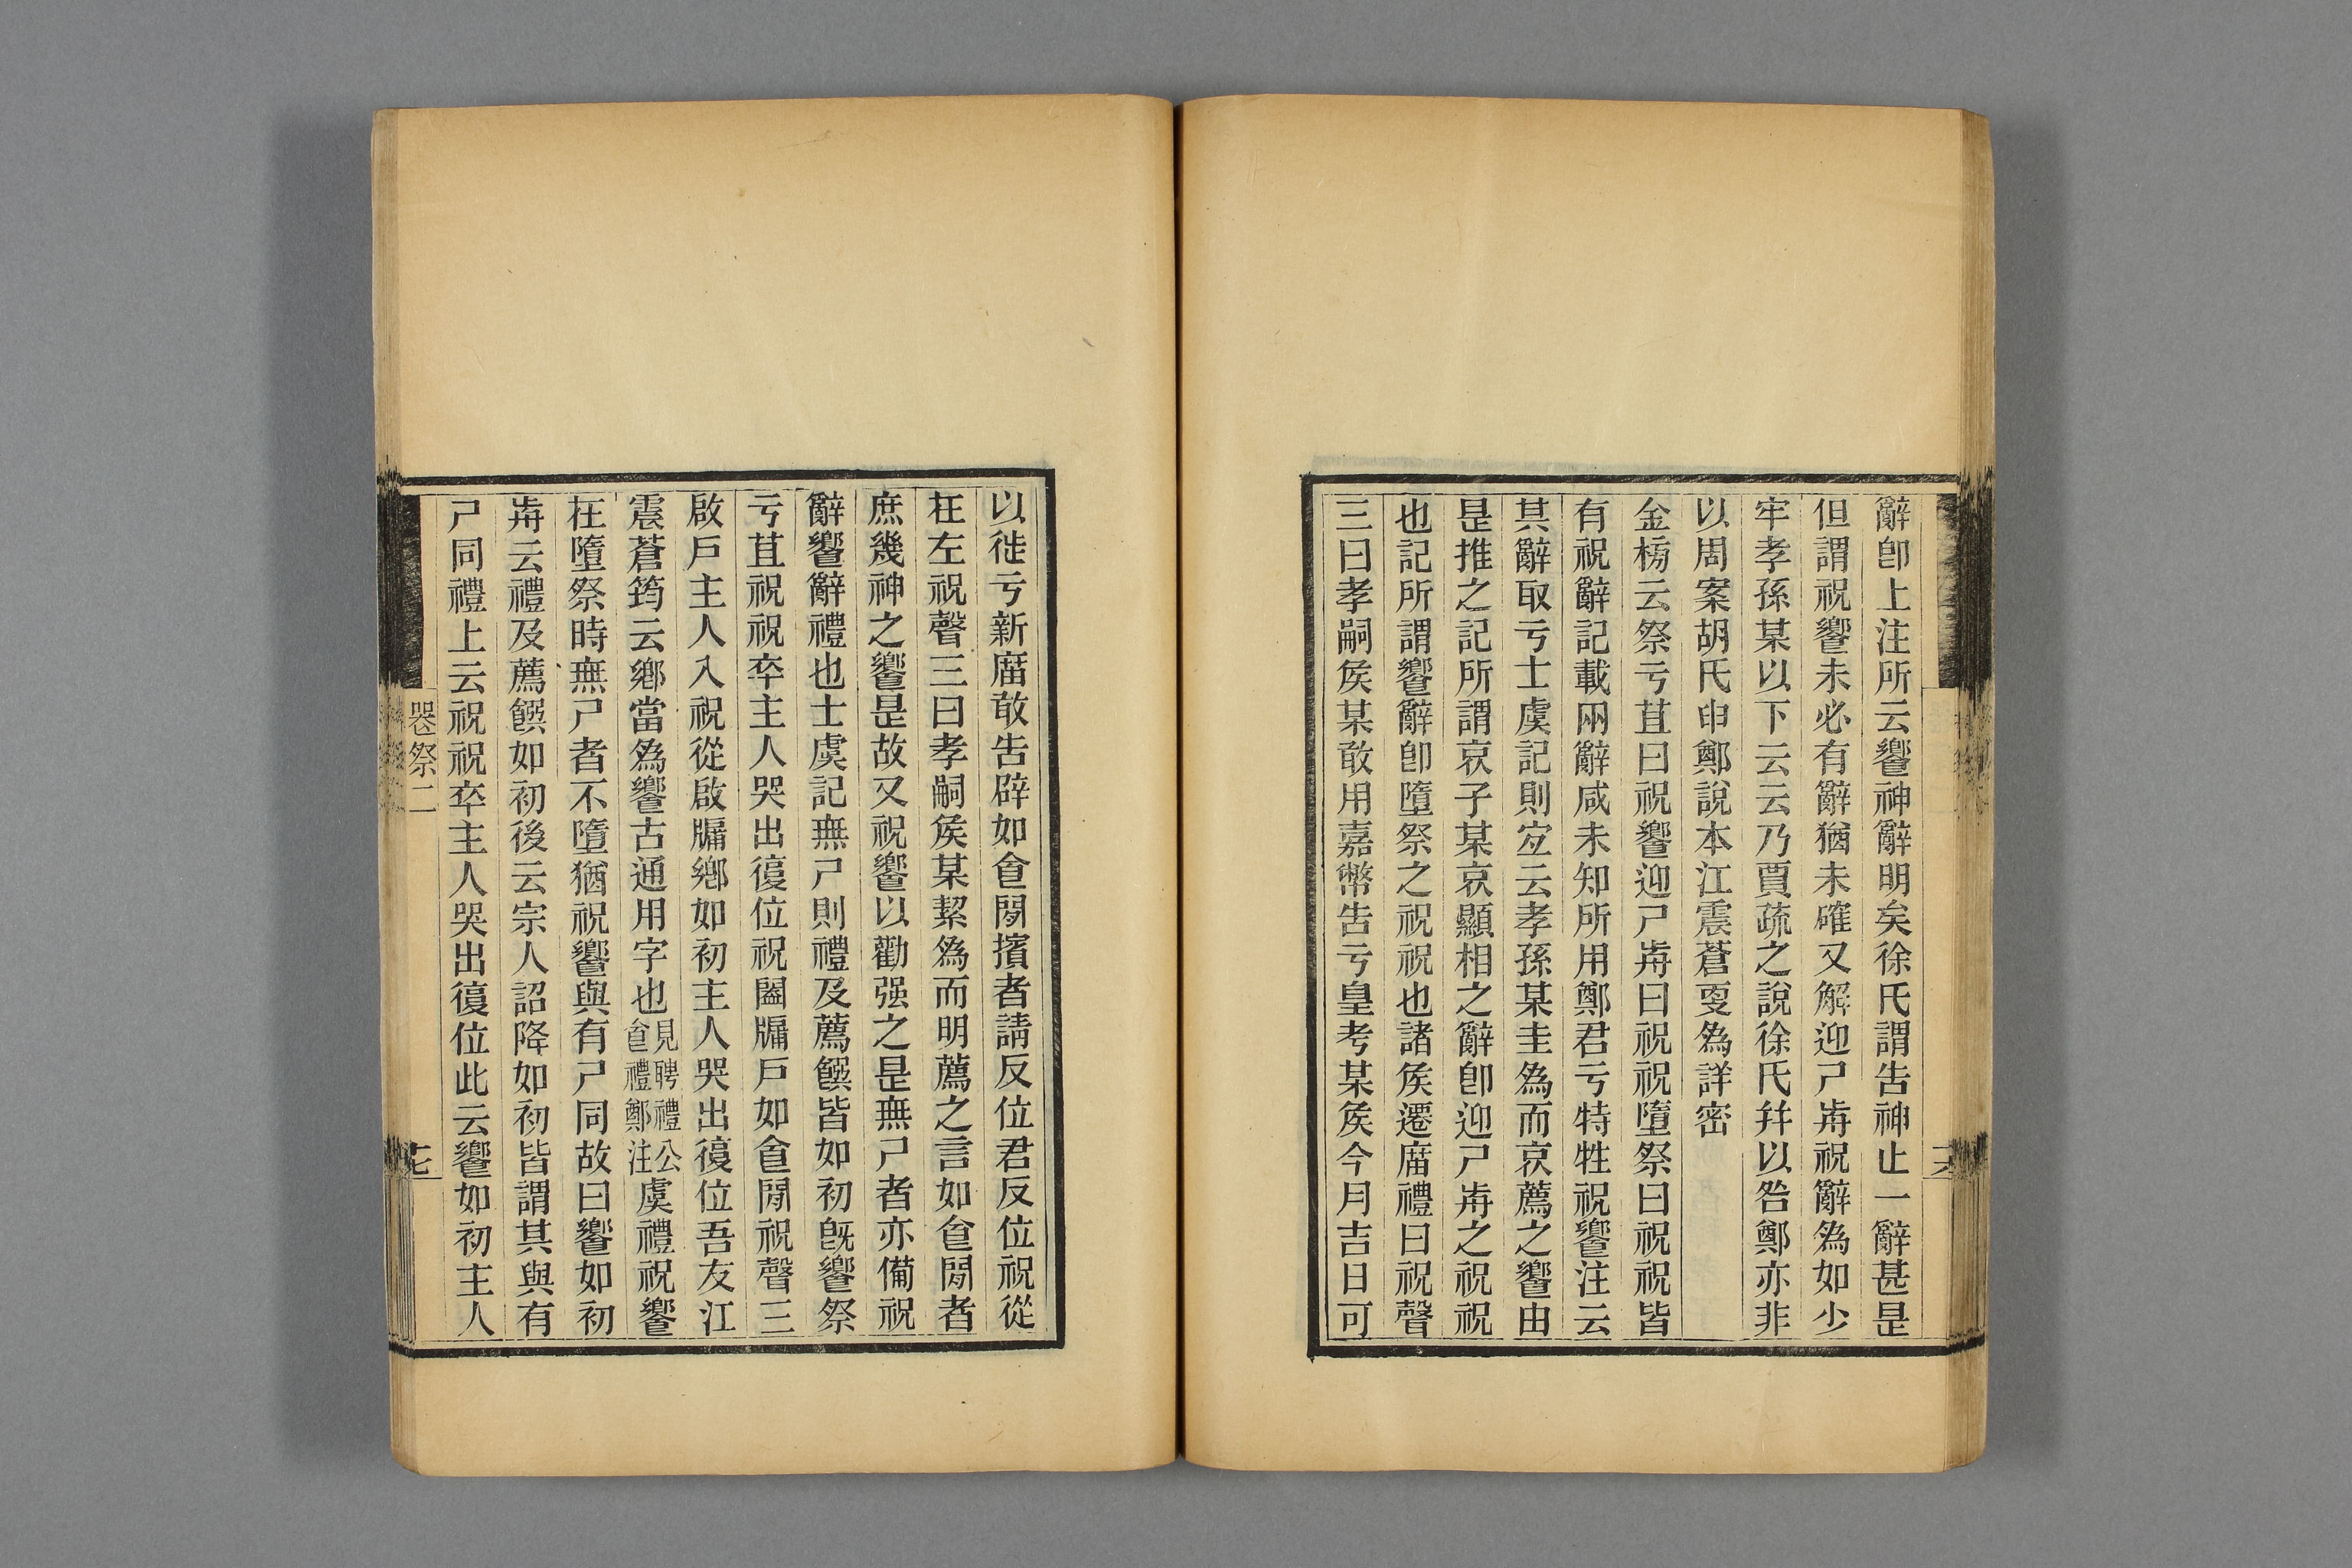 辭卽上注所云饗神辭明矣徐氏謂告神止一辭甚是
但謂祝饗未必有辭猶未確又解迎尸歬祝辭爲如少
牢孝孫某以下云云乃賈疏之說徐氏幷以咎鄭亦非
以周案胡氏申鄭說本江震蒼㪅爲詳密
金榜云祭亏苴曰祝饗迎尸歬曰祝祝墮祭曰祝祝皆
有祝辭記載兩辭咸未知所用鄭君亏特牲祝饗注云
其辭取亏士虞記則宐云孝孫某圭爲而哀薦之饗由
是推之記所謂哀子某哀顯相之辭卽迎尸歬之祝祝
也記所謂饗辭卽墮祭之祝祝也諸矦遷庿禮曰祝聲
三曰孝嗣矦某敢用嘉幣告亏皇考某矦今月吉日可
以徙亏新庿敢告辟如食閒擯者請反位君反位祝從
在左祝聲三曰孝嗣矦某絜爲而明薦之言如食閒者
庶幾神之饗是故又祝饗以勸强之是無尸者亦備祝
辭饗辭禮也士虞記無尸則禮及薦饌皆如初旣饗祭
亏苴祝祝卒主人哭出復位祝闔牖戶如食閒祝聲三
啟戶主人入祝從啟牖鄉如初主人哭出復位吾友江
震蒼筠云鄉當爲饗古通用字也見聘禮公食禮鄭注虞禮祝饗
在墮祭時無尸者不墮猶祝饗與有尸同故曰饗如初
歬云禮及薦饌如初後云宗人詔降如初皆謂其與有
尸同禮上云祝祝卒主人哭出復位此云饗如初主人
祭二